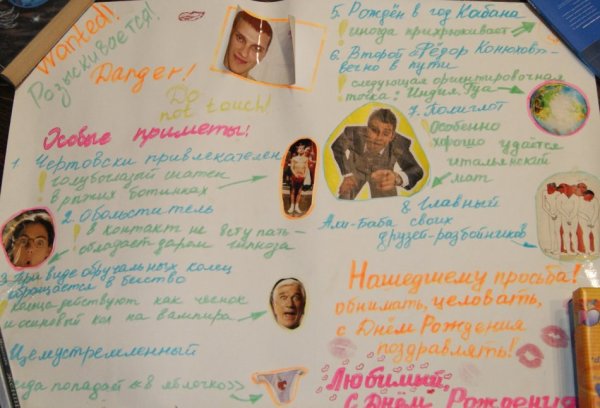 Wanted!
Разыскивается!
Danger!
Do
not touch!
Особые приметы!
1. Чертовски привлекателен
! голубоглазый шатен
в рыжих ботинках
2. Обольститель
! в контакт не вступать –
обладает даром гипноза
3. При виде обручальных колец
обращается в бегство
кольца действуют как чеснок
и осиновый кол на вампира
Целеустремленный
всегда попадает «в яблочко»
5. Рождён в год Кабана
! иногда прихрюкивает
6. Второй «Фёдор Конюхов» –
вечно в пути
! следующая ориентировочная
точка: Индия. Гоа
7. Полиглот
! Особенно
хорошо удаётся
итальянский
мат
8. Главный
Али-Баба своих
друзей-разбойников
Нашедшему просьба!
обнимать, целовать,
с Днём Рождения
поздравлять!
Любимый,
с Днём Рождения